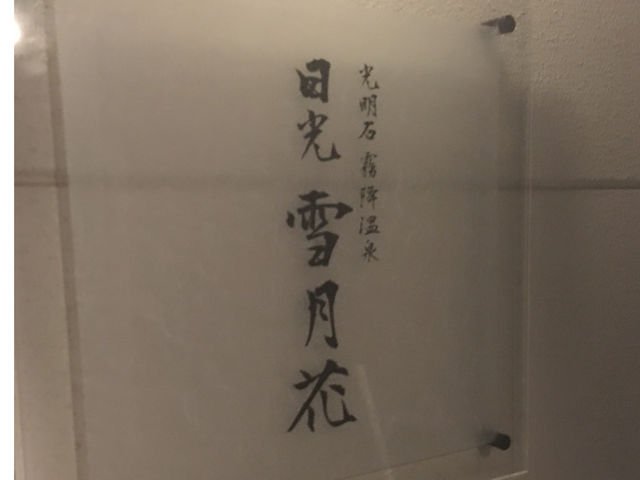 光明石 霧降温泉
日光 雪月花